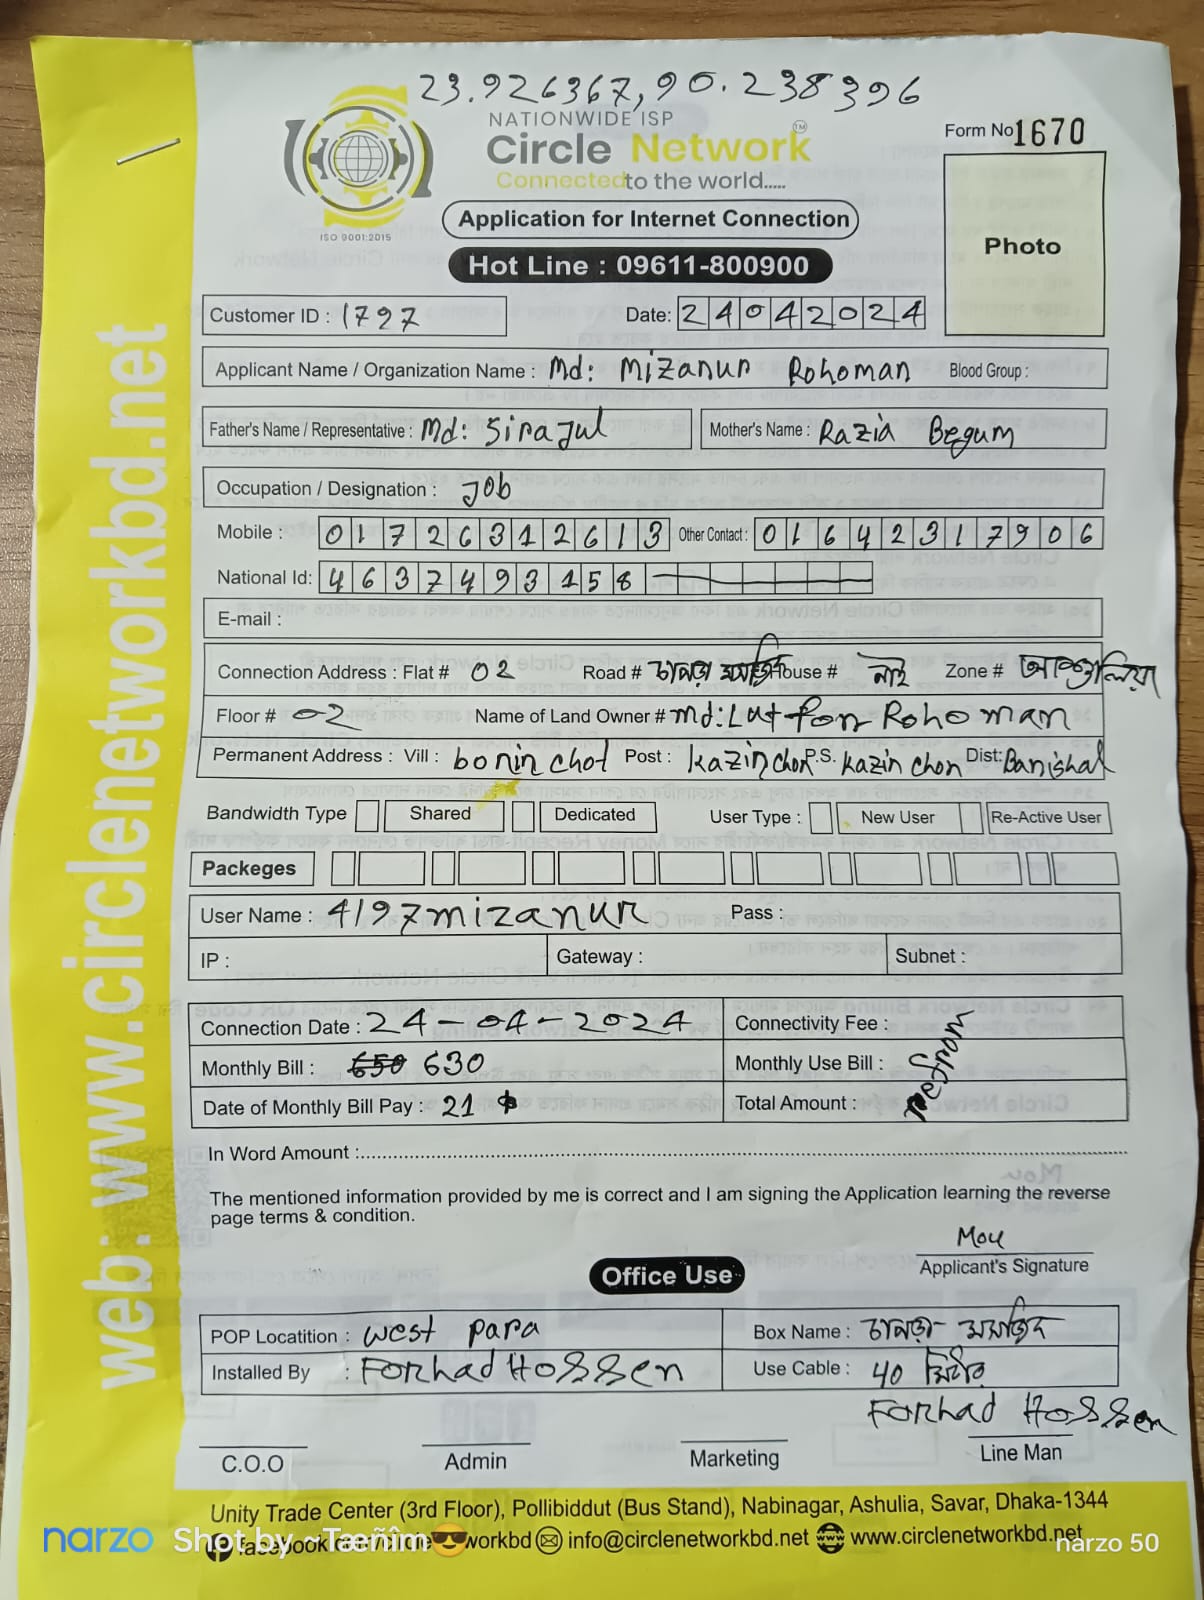 23.926367,90.238396
NATIONWIDE ISP
Circle Network TM
Connected to the world.....
ISO 9001:2015
Form No 1670
Application for Internet Connection
Photo
Hot Line : 09611-800900
Customer ID : 1797 Date: 24042024
Applicant Name / Organization Name : Md: Mizanur Rohoman Blood Group :
Father's Name / Representative : Md: Sirajul Mother's Name : Razia Begum
Occupation / Designation : Job
Mobile : 01726312613 Other Contact : 01642317906
National Id: 4637493158
E-mail :
Connection Address : Flat # 02 Road # চানড়া মসজিদ House # নাই Zone # আশুলিয়া
Floor # 02 Name of Land Owner # Md: Lutfor Rohoman
Permanent Address : Vill : boninchot Post : kazinchon P.S. kazinchon Dist: Banishal
Bandwidth Type Shared Dedicated User Type : New User Re-Active User
Packeges
User Name : 4197mizanur Pass :
IP : Gateway : Subnet :
Connection Date : 24-04-2024 Connectivity Fee :
Monthly Bill : 650 630 Monthly Use Bill :
Date of Monthly Bill Pay : 21 Total Amount :
In Word Amount :
The mentioned information provided by me is correct and I am signing the Application learning the reverse
page terms & condition.
Applicant's Signature
Office Use
POP Locatition : west para Box Name : চানড়া মসজিদ
Installed By : Forhad Hossen Use Cable : 40 মিটার
Forhad Hossen
C.O.O Admin Marketing Line Man
Unity Trade Center (3rd Floor), Pollibiddut (Bus Stand), Nabinagar, Ashulia, Savar, Dhaka-1344
info@circlenetworkbd.net www.circlenetworkbd.net
web: www.circlenetworkbd.net
narzo Shot by narzo 50